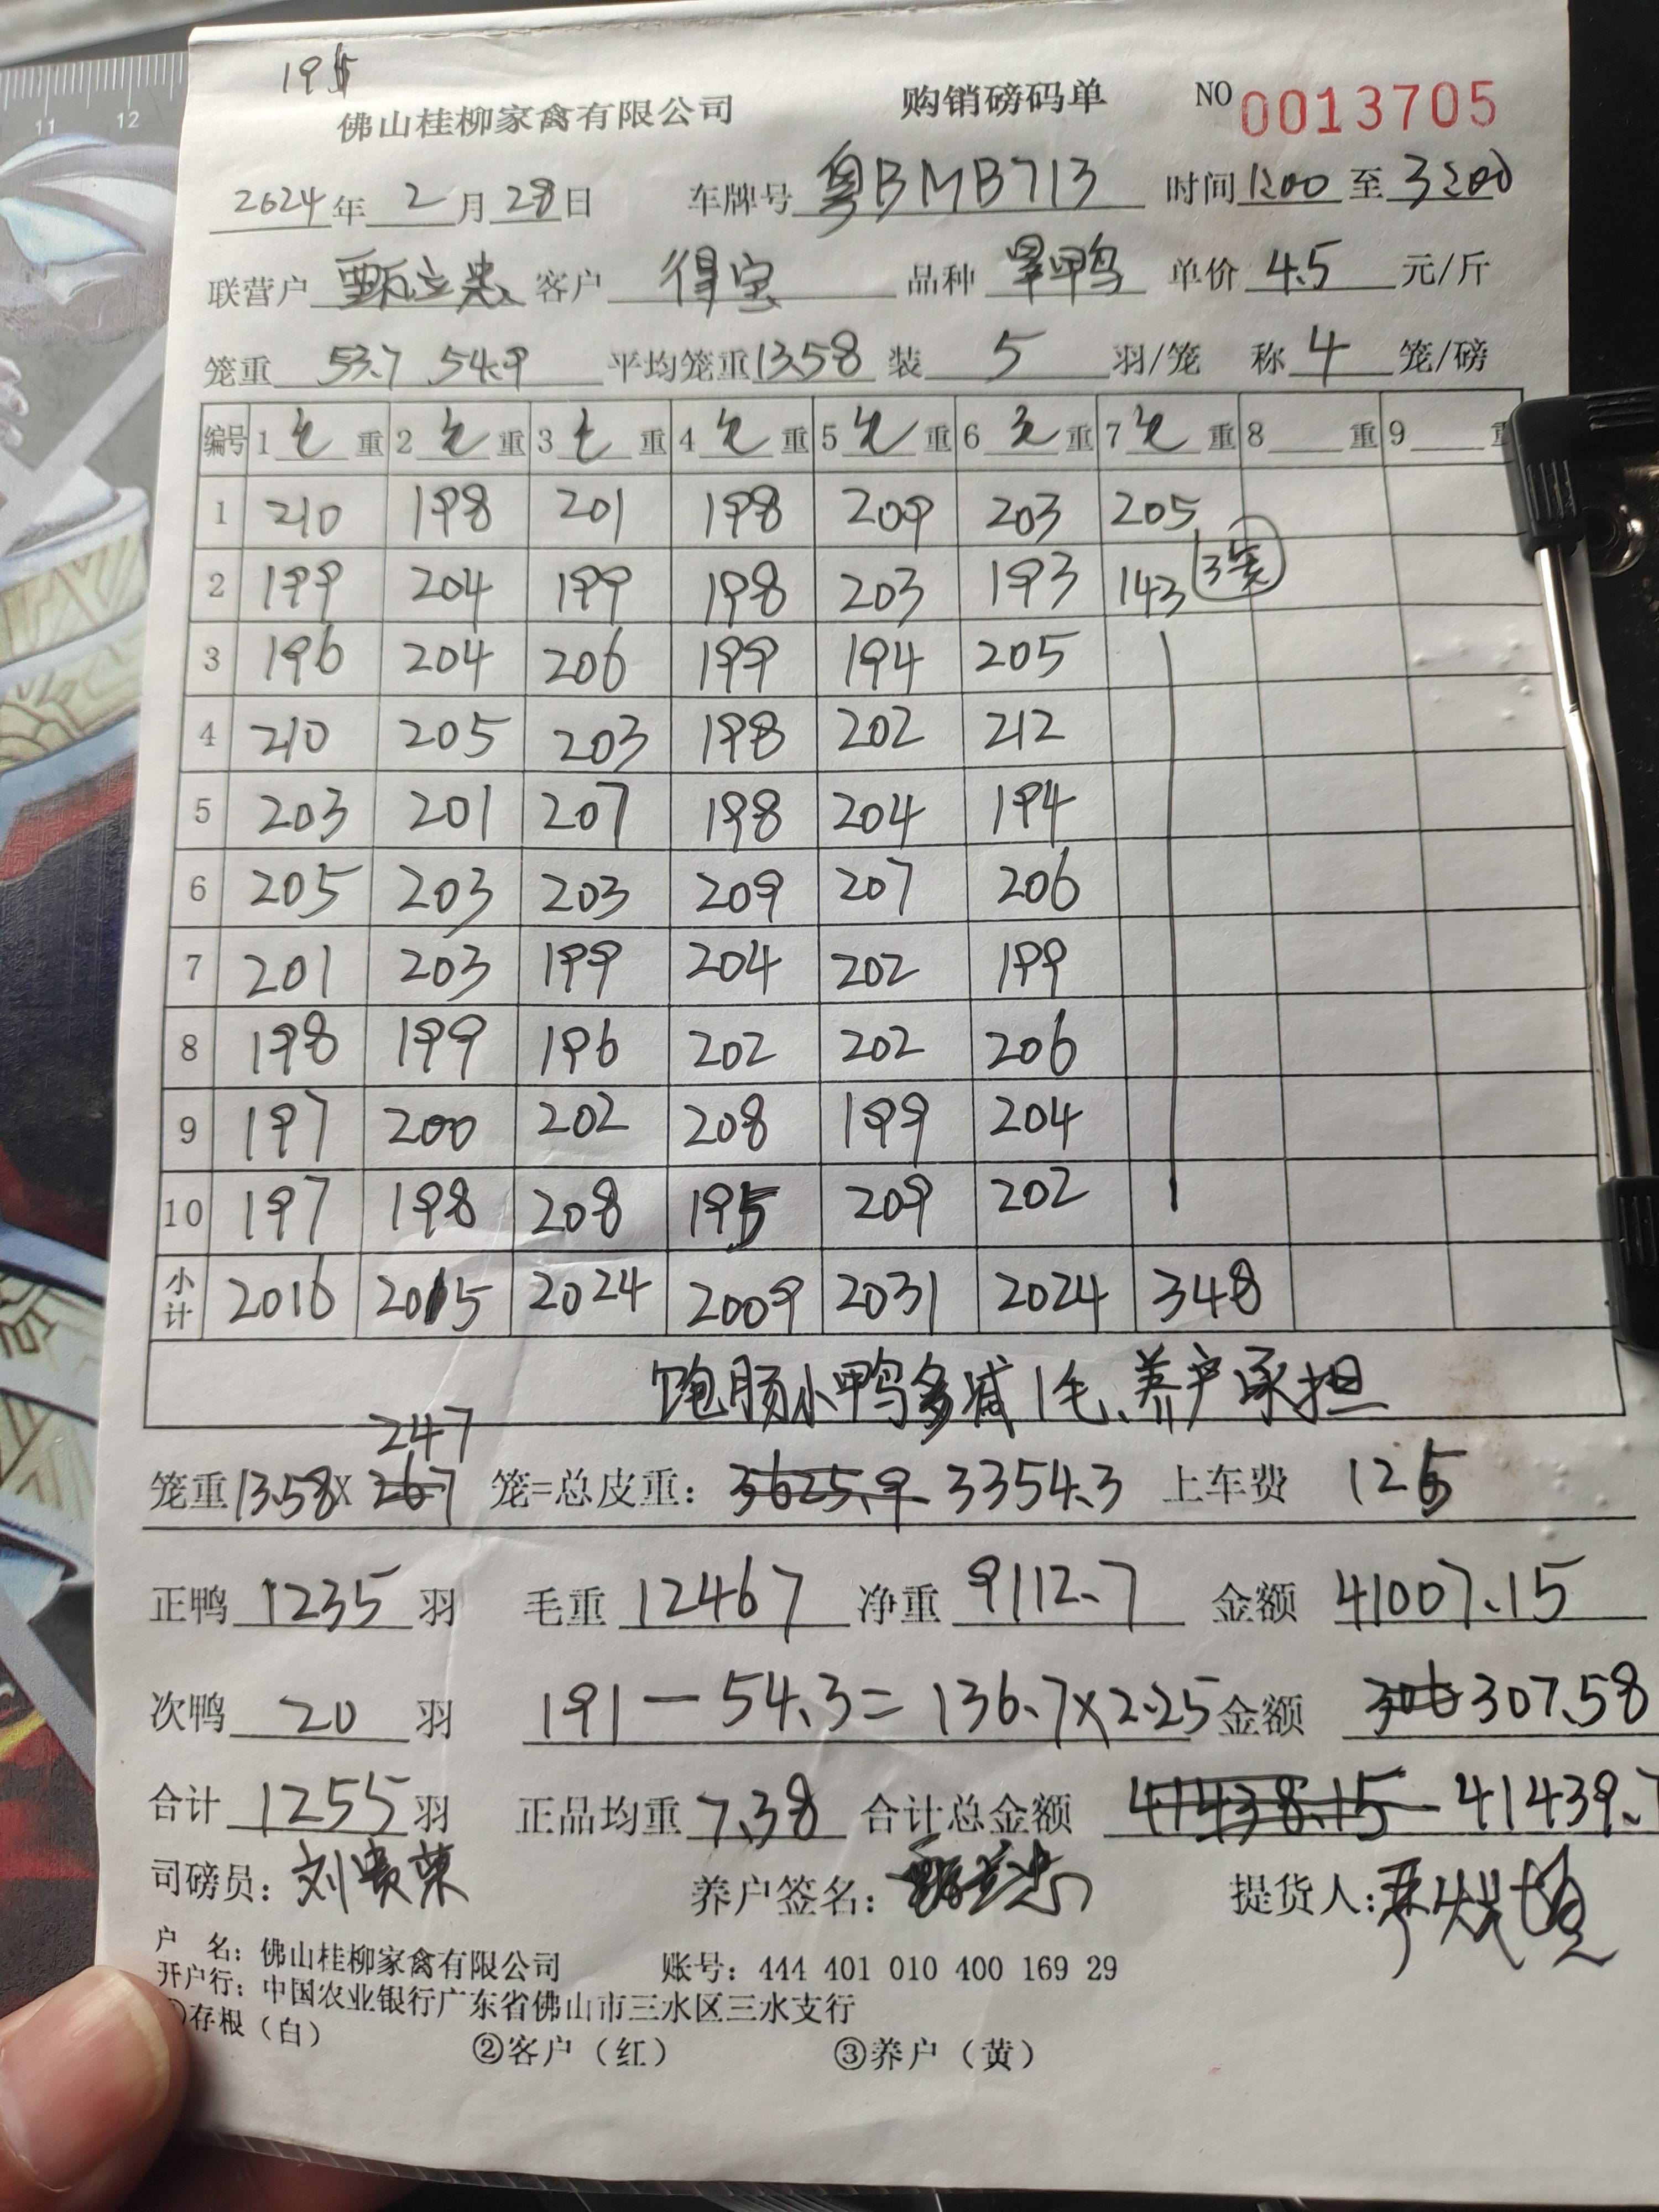 195
佛山桂柳家禽有限公司 购销磅码单 NO 0013705
2024年 2 月 28 日 车牌号 粤BMB713 时间 1200 至 3200
联营户 甄立忠 客户 得宝 品种 旱鸭 单价 4.5 元/斤
笼重 53.7 54.9 平均笼重 13.58 装 5 羽/笼 称 4 笼/磅
编号 1 毛 重 2 毛 重 3 毛 重 4 毛 重 5 毛 重 6 毛 重 7 毛 重 8 重 9 重
1 210 198 201 198 209 203 205
2 199 204 199 198 203 193 143 3笼
3 196 204 206 199 194 205
4 210 205 203 198 202 212
5 203 201 207 198 204 194
6 205 203 203 209 207 206
7 201 203 199 204 202 199
8 198 199 196 202 202 206
9 197 200 202 208 199 204
10 197 198 208 195 209 202
小计 2016 2015 2024 2009 2031 2024 348
饱肠小鸭多减1毛、养户承担
247
笼重 13.58 X 267 笼=总皮重: 3625.9 3354.3 上车费 125
正鸭 1235 羽 毛重 12467 净重 9112.7 金额 41007.15
次鸭 20 羽 191-54.3=136.7×2.25 金额 306 307.58
合计 1255 羽 正品均重 7.38 合计总金额 41438.15 41439.7
司磅员: 刘贵荣 养户签名: 提货人:
户 名: 佛山桂柳家禽有限公司 账号: 444 401 010 400 169 29
开户行: 中国农业银行广东省佛山市三水区三水支行
存根(白) ②客户(红) ③养户(黄)